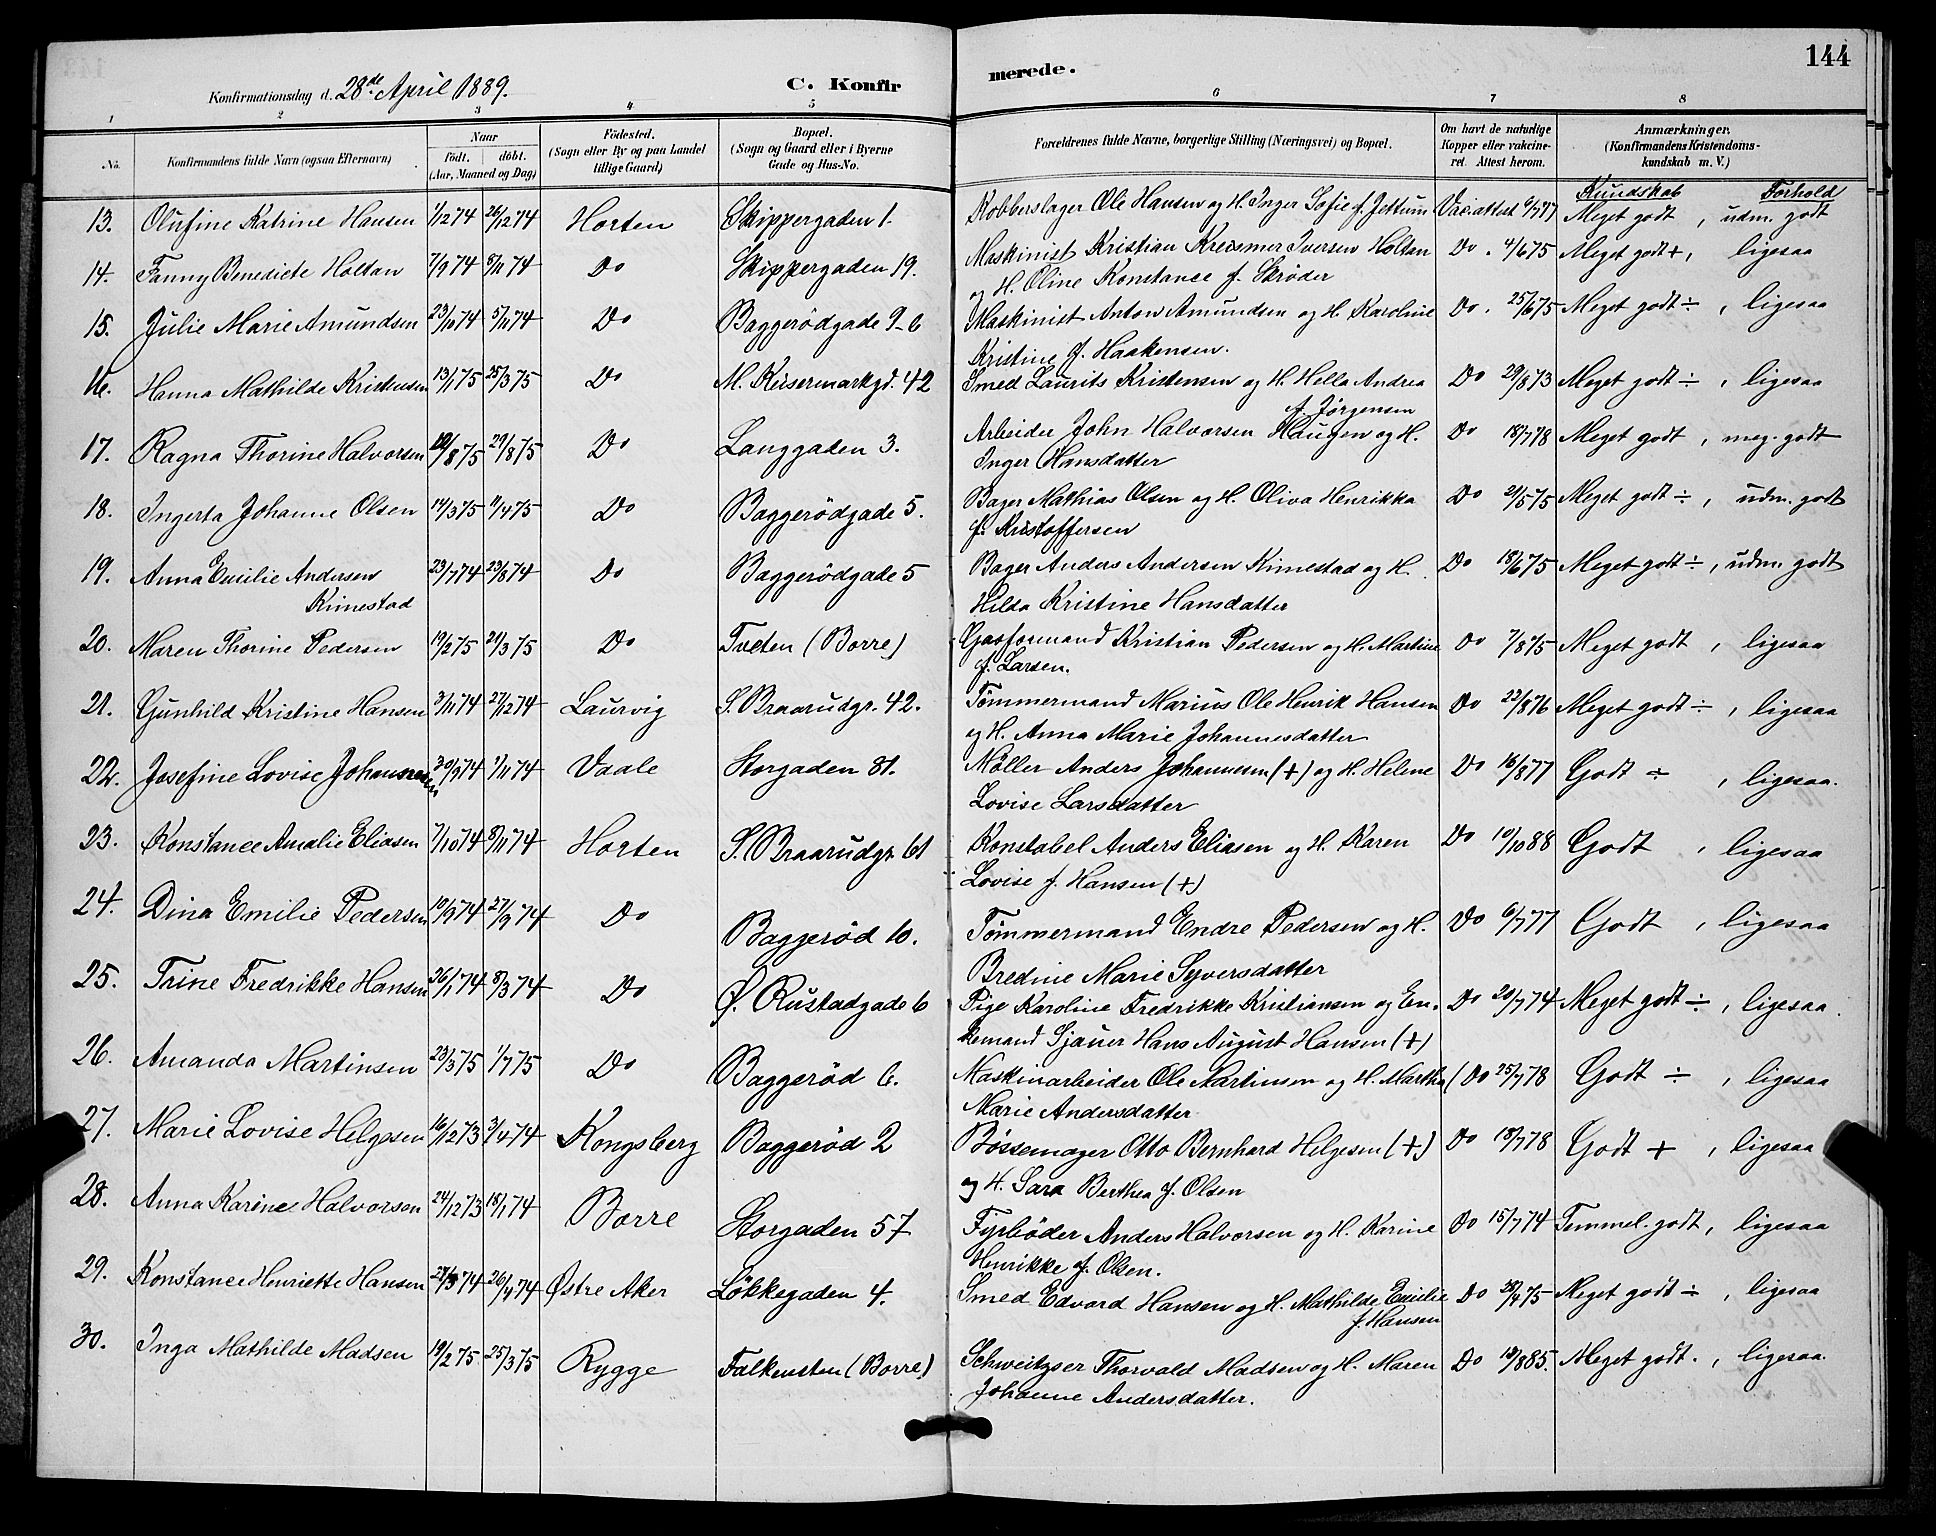 144
Konfirmationsdag d. 28de April 1889. C. Konfirmerede.
1 2 3 4 5 6 7 8
No. Konfirmandens fulde Navn (ogsaa Efternavn) Naar født. døbt. (Aar, Maaned og Dag) Fødested. (Sogn eller By og paa Landet tillige Gaard) Bopæl. (Sogn og Gaard eller i Byerne Gade og Hus-No. Forældrenes fulde Navne, borgerlige Stilling (Næringsvei) og Bopæl. Om havt de naturlige Kopper eller vakcineret. Attest herom. Anmærkninger. (Konfirmandens Kristendomskundskab m. V.)
Kundskab Forhold
13. Olufine Katrine Hansen 1/12 74 26/12 74 Horten Skippergaden 1. Kobberslager Ole Hansen og H. Inger Sofie f. Jettum Vacattest 6/7 77 Meget godt, udm. godt
14. Fanny Benedicte Holtan 7/9 74 8/11 74 Do Skippergaden 19. Maskinist Kristian Iversen Holtan Do. 4/6 75 Meget godt +, ligesaa
og H. Oline Konstance f. Skrøder
15. Julie Marie Amundsen 23/10 74 5/11 74 Do Baggerödgade 9-6 Maskinist Anton Amundsen og H. Karoline Do. 25/6 75 Meget godt ÷, ligesaa
Kristine f. Haakensen.
16. Hanna Mathilde Kristensen 13/1 75 25/3 75 Do 42 Smed Laurits Kristensen og H. Hella Andrea Do 29/8 73 Meget godt ÷, ligesaa
f. Jørgensen
17. Ragna Thorine Halvorsen 12/8 75 29/8 75 Do Langgaden 3. Arbeider John Halvorsen Haugen og H. Do 18/7 78 Meget godt, meg. godt
Inger Hansdatter
18. Ingerta Johanne Olsen 14/3 75 11/4 75 Do Baggerödgade 5. Bager Mathias Olsen og H. Oliva Henrikka Do 21/5 75 Meget godt ÷, udm. godt
f. Kristoffersen
19. Anna Emilie Andersen 23/7 74 23/8 74 Do Baggerödgade 5 Bager Anders Andersen Kimestad og H. Do 18/6 75 Meget godt ÷, udm. godt
Kimestad Hilda Kristine Hansdatter
20. Maren Thorine Pedersen 19/2 75 21/3 75 Do Tveten (Borre) Gasformand Kristian Pedersen og H. Martine Do 7/8 75 Meget godt, ligesaa
f. Larsen.
21. Gunhild Kristine Hansen 3/11 74 27/12 74 Laurvig S. Braarudgr. 42. Tømmermand Marius Ole Henrik Hansen Do 22/8 76 Meget godt ÷, ligesaa
og H. Anna Marie Johannesdatter
22. Josefine Lovise Johannesen 30/9 74 1/11 74 Vaale Storgaden 81. Møller Anders Johannesen (+) og H. Helene Do 16/8 77 Godt ÷, ligesaa.
Lovise Larsdatter
23. Konstance Amalie Eliasen 7/10 74 8/11 74 Horten S. Braarudgr. 61 Konstabel Anders Eliasen og H. Karen Do 10/10 88 Godt, ligesaa
Lovise f. Hansen (+)
24. Dina Emilie Pedersen 10/9 74 27/9 74 Do Baggeröd 10. Tømmermand Endre Pedersen og H. Do 6/7 77 Godt, ligesaa
Bredine Marie Syversdatter
25. Trine Fredrikke Hansen 26/1 74 8/3 74 Do Ø. Rustadgade 6 Pige Karoline Fredrikke Kristiansen og En- Do 20/7 74 Meget godt ÷, ligesaa.
kemand Sjauer Hans August Hansen (+)
26. Amanda Martinsen 23/3 75 1/7 75 Do Baggeröd 6. Maskinarbeider Ole Martinsen og H. Martha (Do 25/7 78 Godt ÷, ligesaa
Marie Andersdatter
27. Marie Lovise Helgesen 16/12 73 3/4 74 Kongsberg Baggeröd 2 Bøssemager Otto Bernhard Helgesen (+) Do 18/7 78 Godt +, ligesaa
og H. Sara Berthea f. Olsen
28. Anna Karine Halvorsen 24/12 73 18/1 74 Borre Storgaden 57 Fyrbøder Anders Halvorsen og H. Karine Do 15/7 74 Temmel. godt, ligesaa
Henrikke f. Olsen.
29. Konstance Henriette Hansen 3 74 26/4 74 Østre Aker Løkkegaden 4. Smed Edvard Hansen og H. Mathilde Emilie Do 4 75 Meget godt ÷, ligesaa
f. Hansen
30. Inga Mathilde Madsen 19/2 75 25/3 75 Rygge Falkensten (Borre) Schweitzser Thorvald Madsen og H. Maren Do 8 85. Meget godt., ligesaa
Johanne Andersdatter.